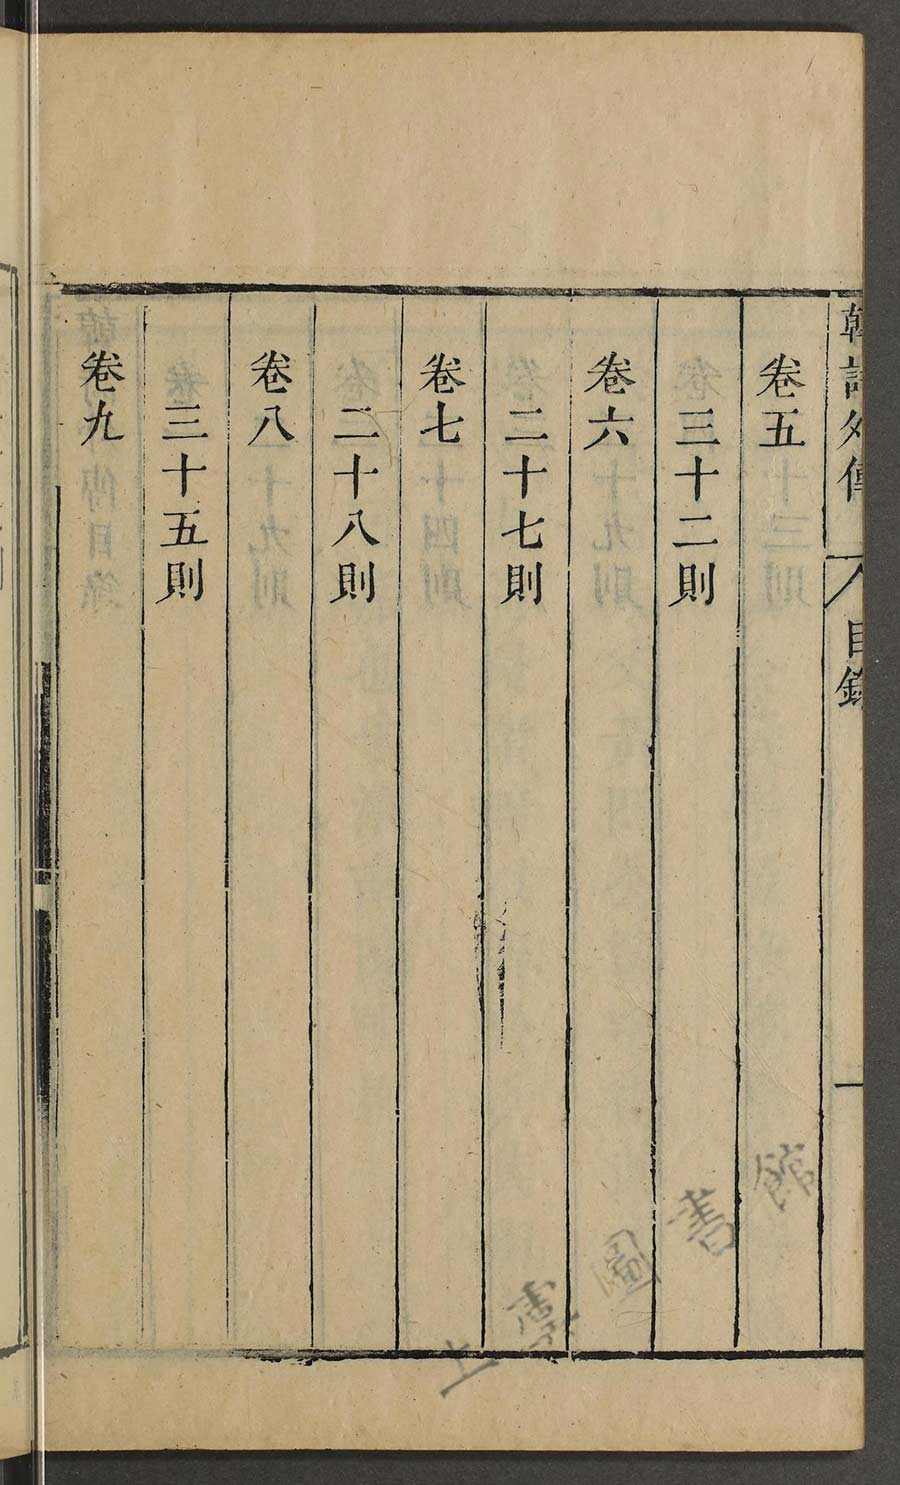 韓詩外傳 目錄 一
卷五
三十二則
卷六
二十七則
卷七
二十八則
卷八
三十五則
卷九
圖書館